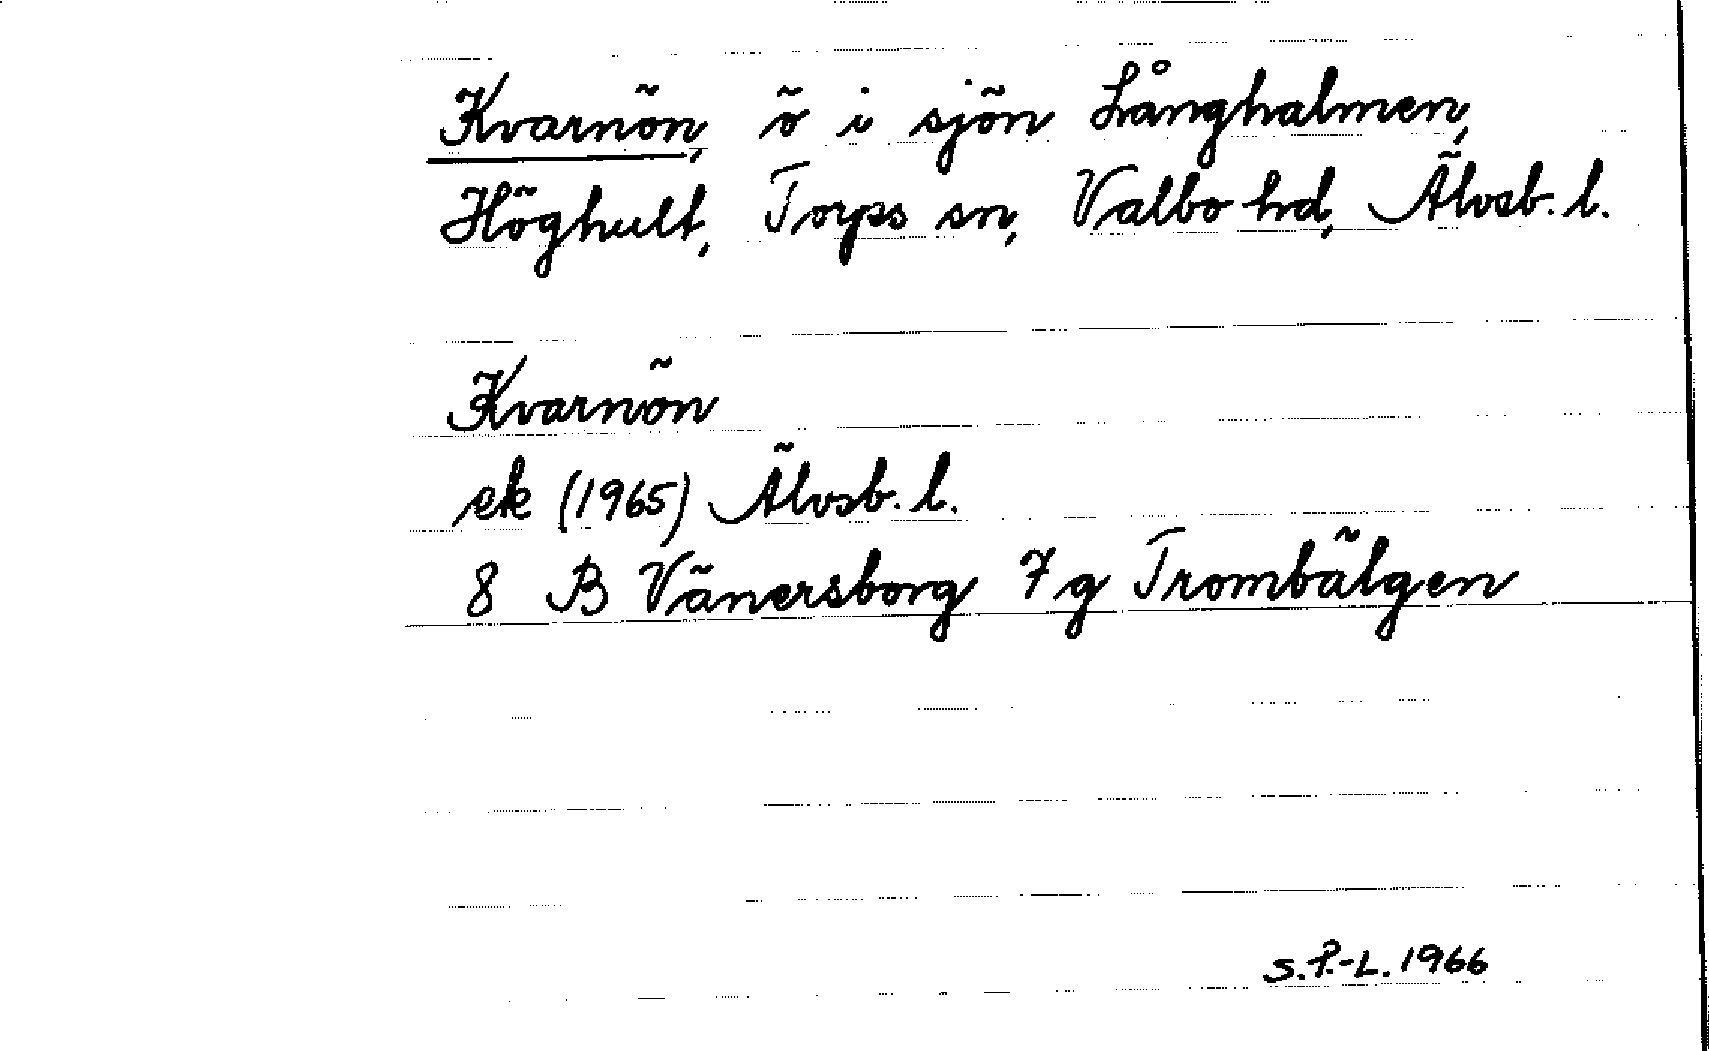 Kvarnön, ö i sjön Långhalmen,
Höghult, Torps sn, Valbo hd, Älvsb. l.
Kvarnön
ek (1965) Älvsb. l.
8 B Vänersborg 7 g Trombälgen
S.P.-L. 1966